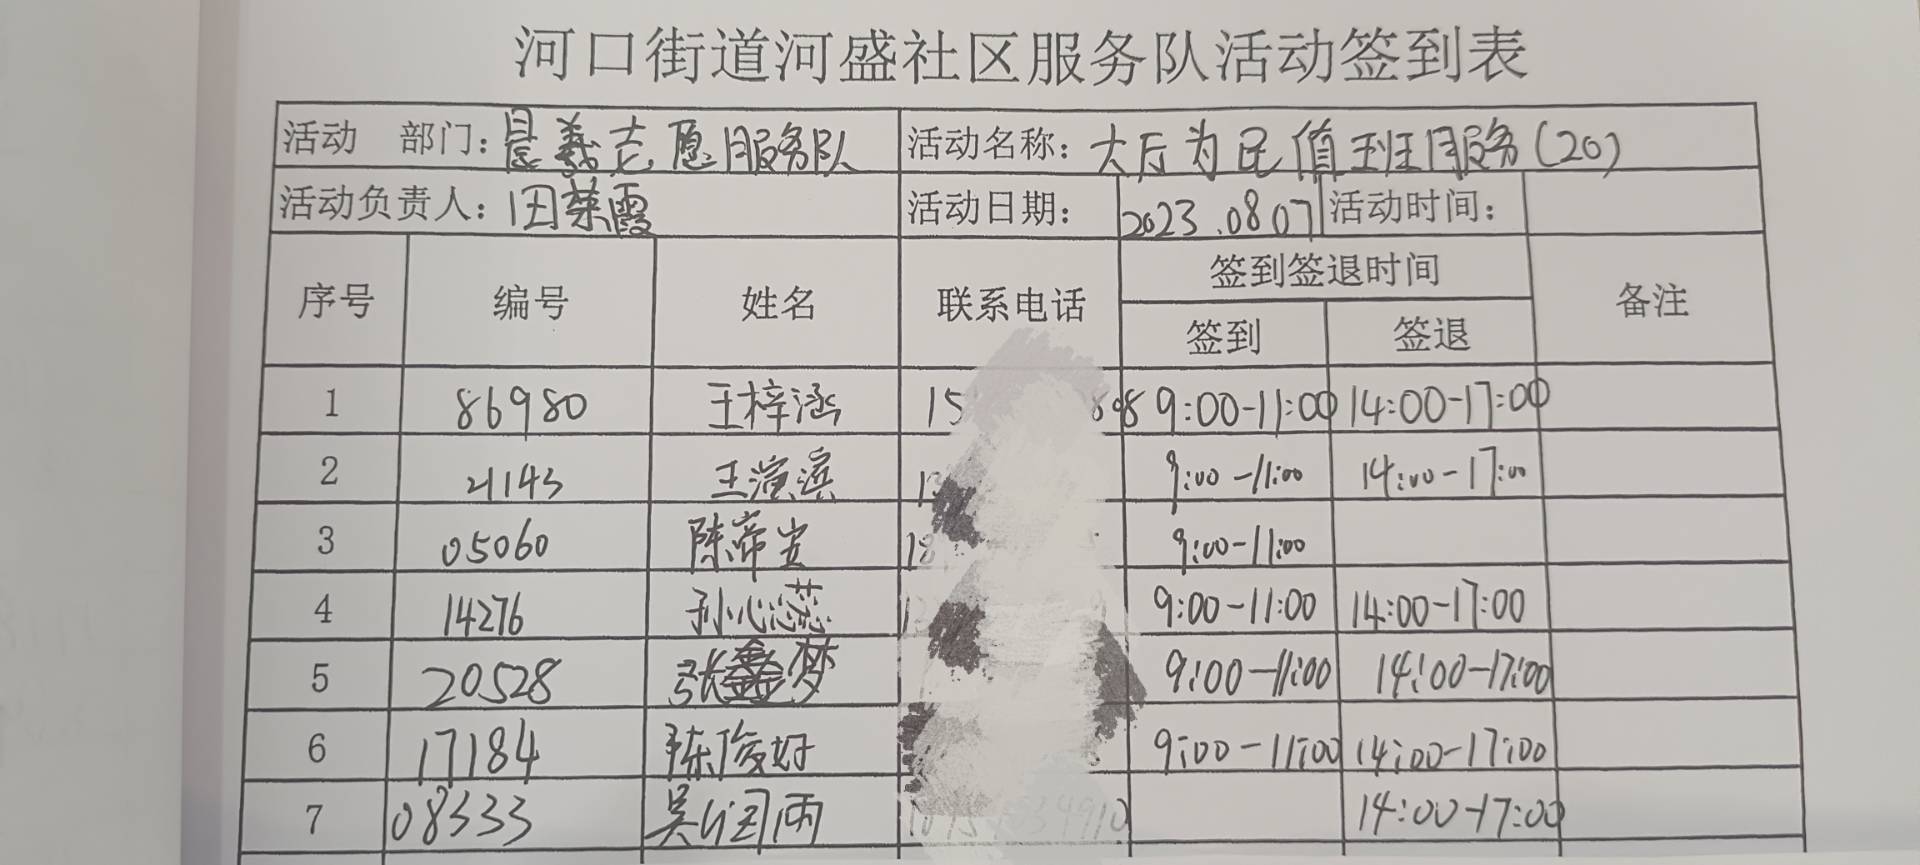 河口街道河盛社区服务队活动签到表
活动 部门：晨羲志愿服务队 活动名称：大厅为民值班服务(20)
活动负责人：田荣霞 活动日期：2023.0807 活动时间：
序号 编号 姓名 联系电话 签到签退时间 备注
签到 签退
1 86980 王梓涵 9:00-11:00 14:00-17:00
2 21143 王演滨 9:00-11:00 14:00-17:00
3 05060 9:00-11:00
4 14276 孙心蕊 9:00-11:00 14:00-17:00
5 20528 张鑫梦 9:00-11:00 14:00-17:00
6 17184 陈俊好 9:00-11:00 14:00-17:00
7 08333 吴润雨 14:00-17:00